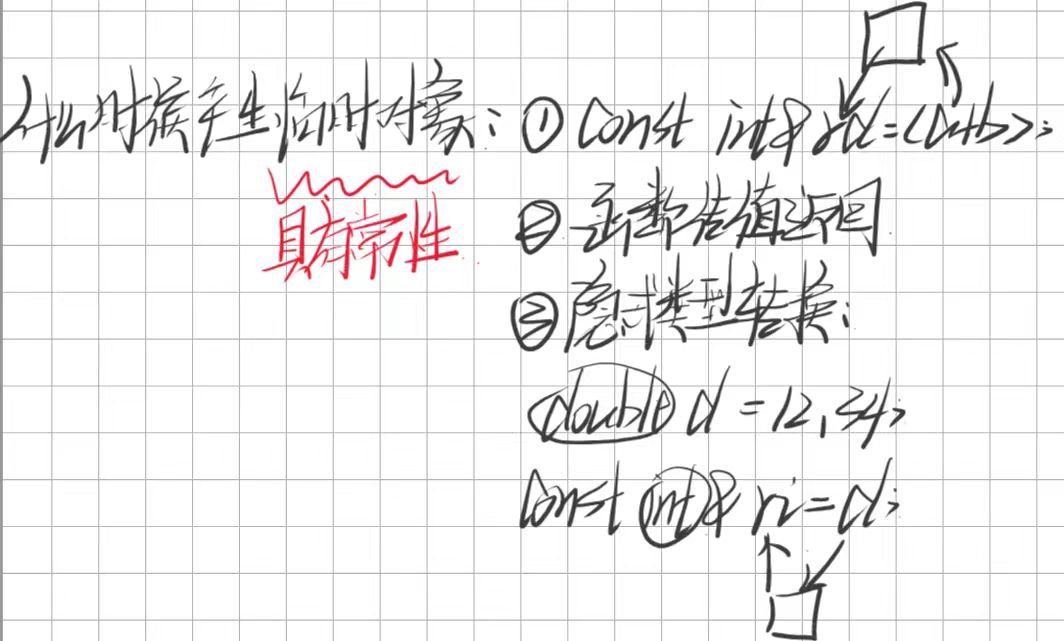 什么时候产生临时对象：① const int& rd=(a+b);
具有常性
② 函数传值返回
③ 隐式类型转换：
double d = 12.34;
const int& ri = d;